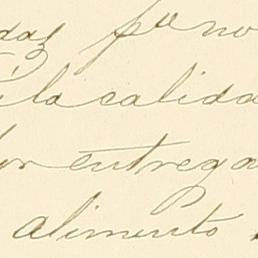 das por no
a la calida
por entrega
alimento